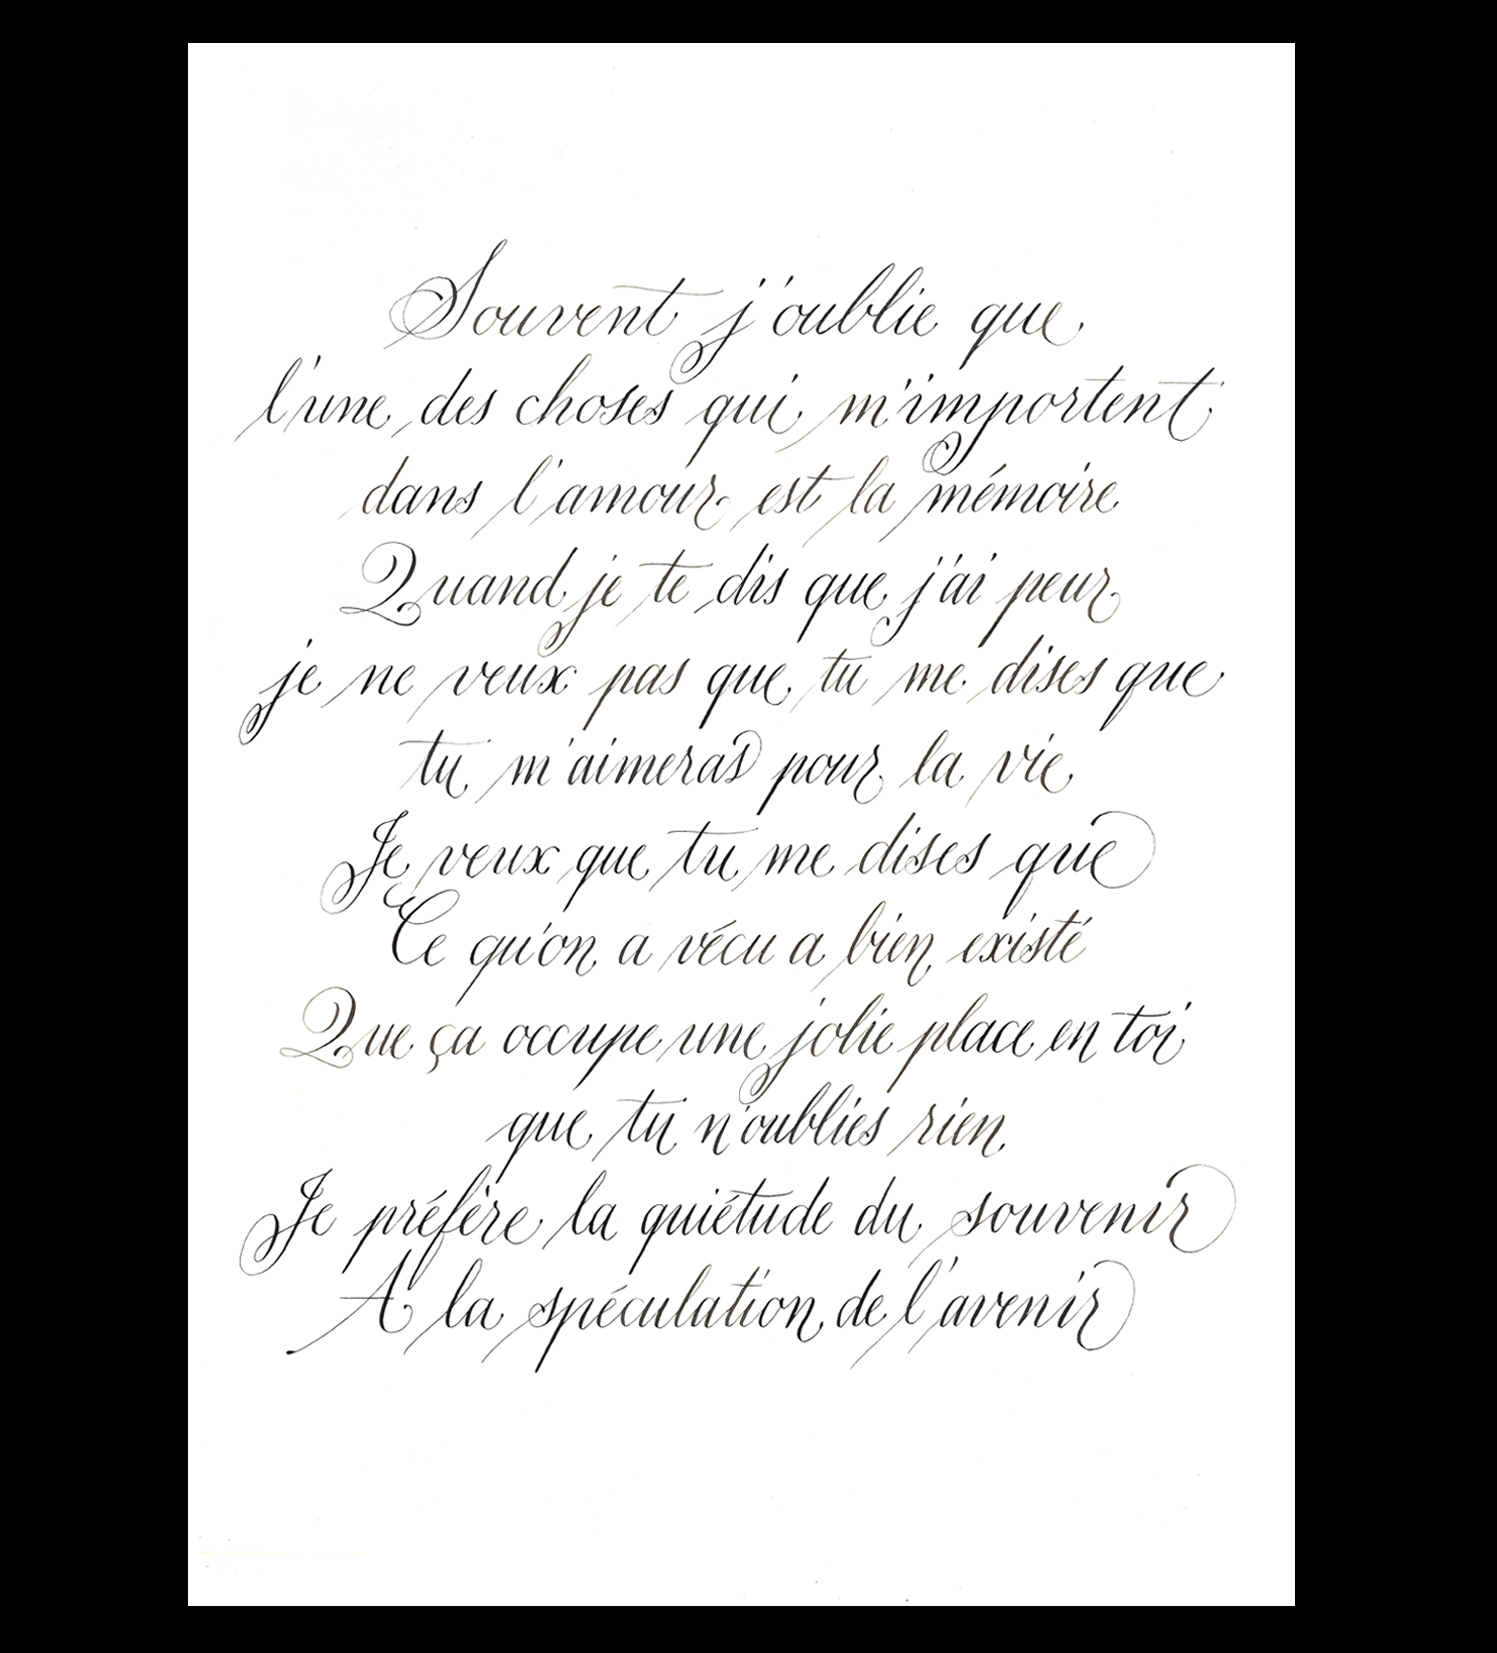 Souvent j'oublie que
l'une des choses qui m'importent
dans l'amour est la mémoire
Quand je te dis que j'ai peur
je ne veux pas que tu me dises que
tu m'aimeras pour la vie
Je veux que tu me dises que
Ce qu'on a vécu a bien existé
Que ça occupe une jolie place en toi
que tu n'oublies rien
Je préfère la quiétude du souvenir
A la spéculation de l'avenir